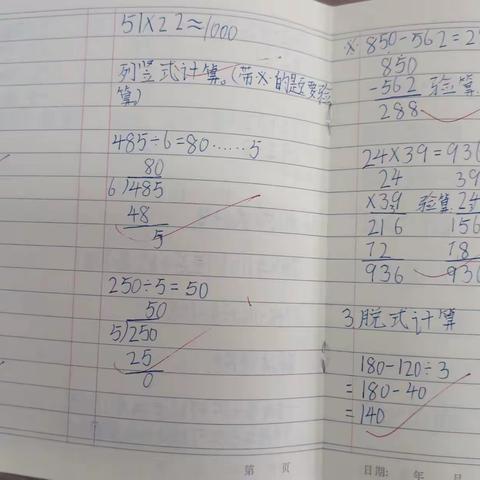 51×22≈1000
列竖式计算。(带※的题要验
算)
485÷6=80……5
80
6)485
48
5
250÷5=50
50
5)250
25
0
※850-562=2
850
-562 验算
288
24×39=936
24 39
×39 验算 24
216 156
72 78
936 936
3.脱式计算
180-120÷3
=180-40
=140
第 页
日期: 年 月